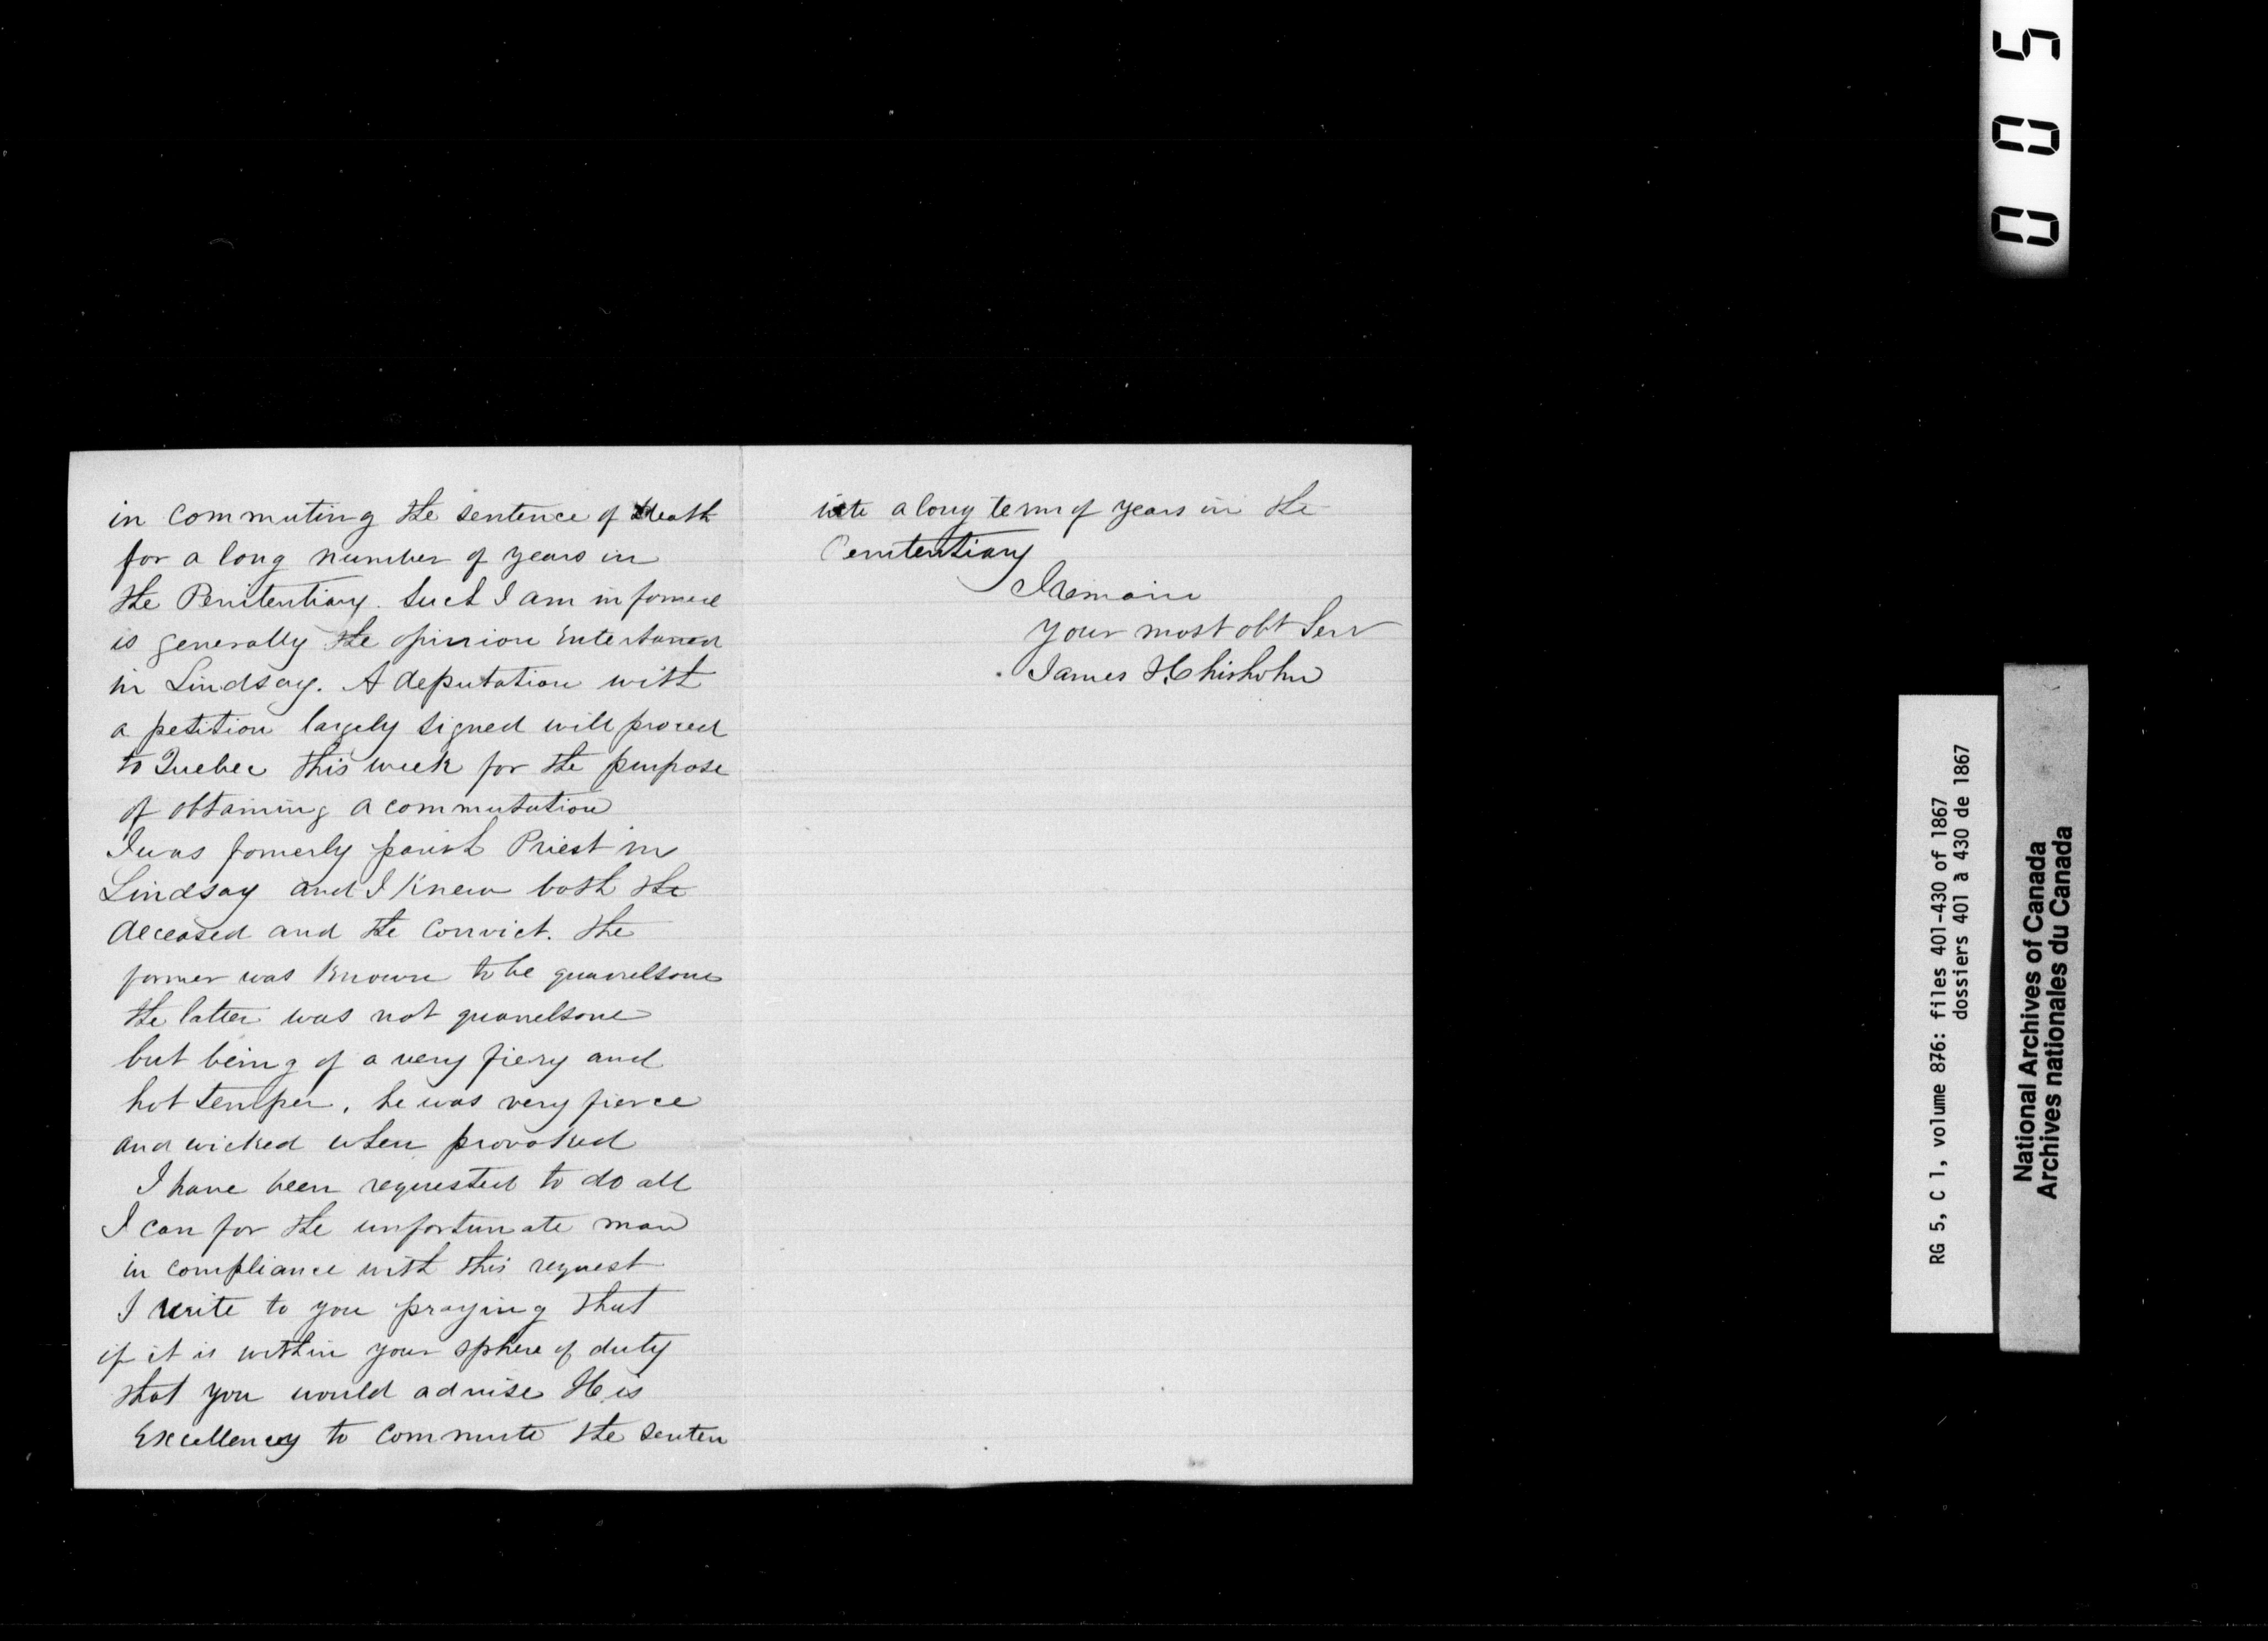 in commuting the sentence of Death
for a long number of years in
the Penitentiary. Such I am informed
is generally the opinion entertaned
in Lindsay. A deputation with
a petition largely signed will proced
to Quebec this week for the purpose
of obtaining a commutation
I was fomerly parish Priest in
Lindsay and I knew both the
deceased and the convict. The
former was known to be quarrelsome
the latter was not quarrelsome
but being of a very fiery and
hot temper, he was very fierce
and wicked when provoked
I have been requested to do all
I can for the unfortunate man
in compliance with this request
I write to you praying that
if it is within your sphere of duty
that you would advise His
Excellency to commute the senten
into a long term of years in the
Penitentiary
I remain
your most obt Serv
James H Chisholm
005
RG 5, C 1, volume 876: files 401-430 of 1867
dossiers 401 à 430 de 1867
National Archives of Canada
Archives nationales du Canada